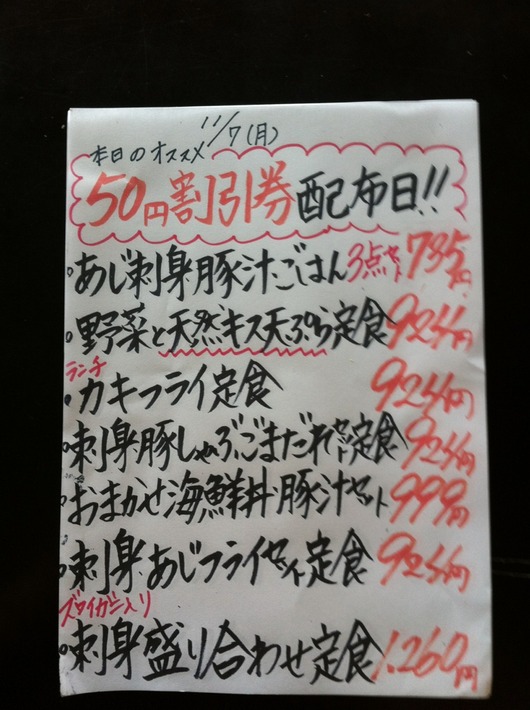 11/7(月)
本日のオススメ
50円割引券配布日!!
・あじ刺身豚汁ごはん3点セット735円
・野菜と天然キス天ぷら定食924円
ランチ
・カキフライ定食 924円
・刺身豚しゃぶごまだれセット定食924円
・おまかせ海鮮丼豚汁セット999円
・刺身あじフライセット定食924円
ズワイガニ入り
・刺身盛り合わせ定食1.260円